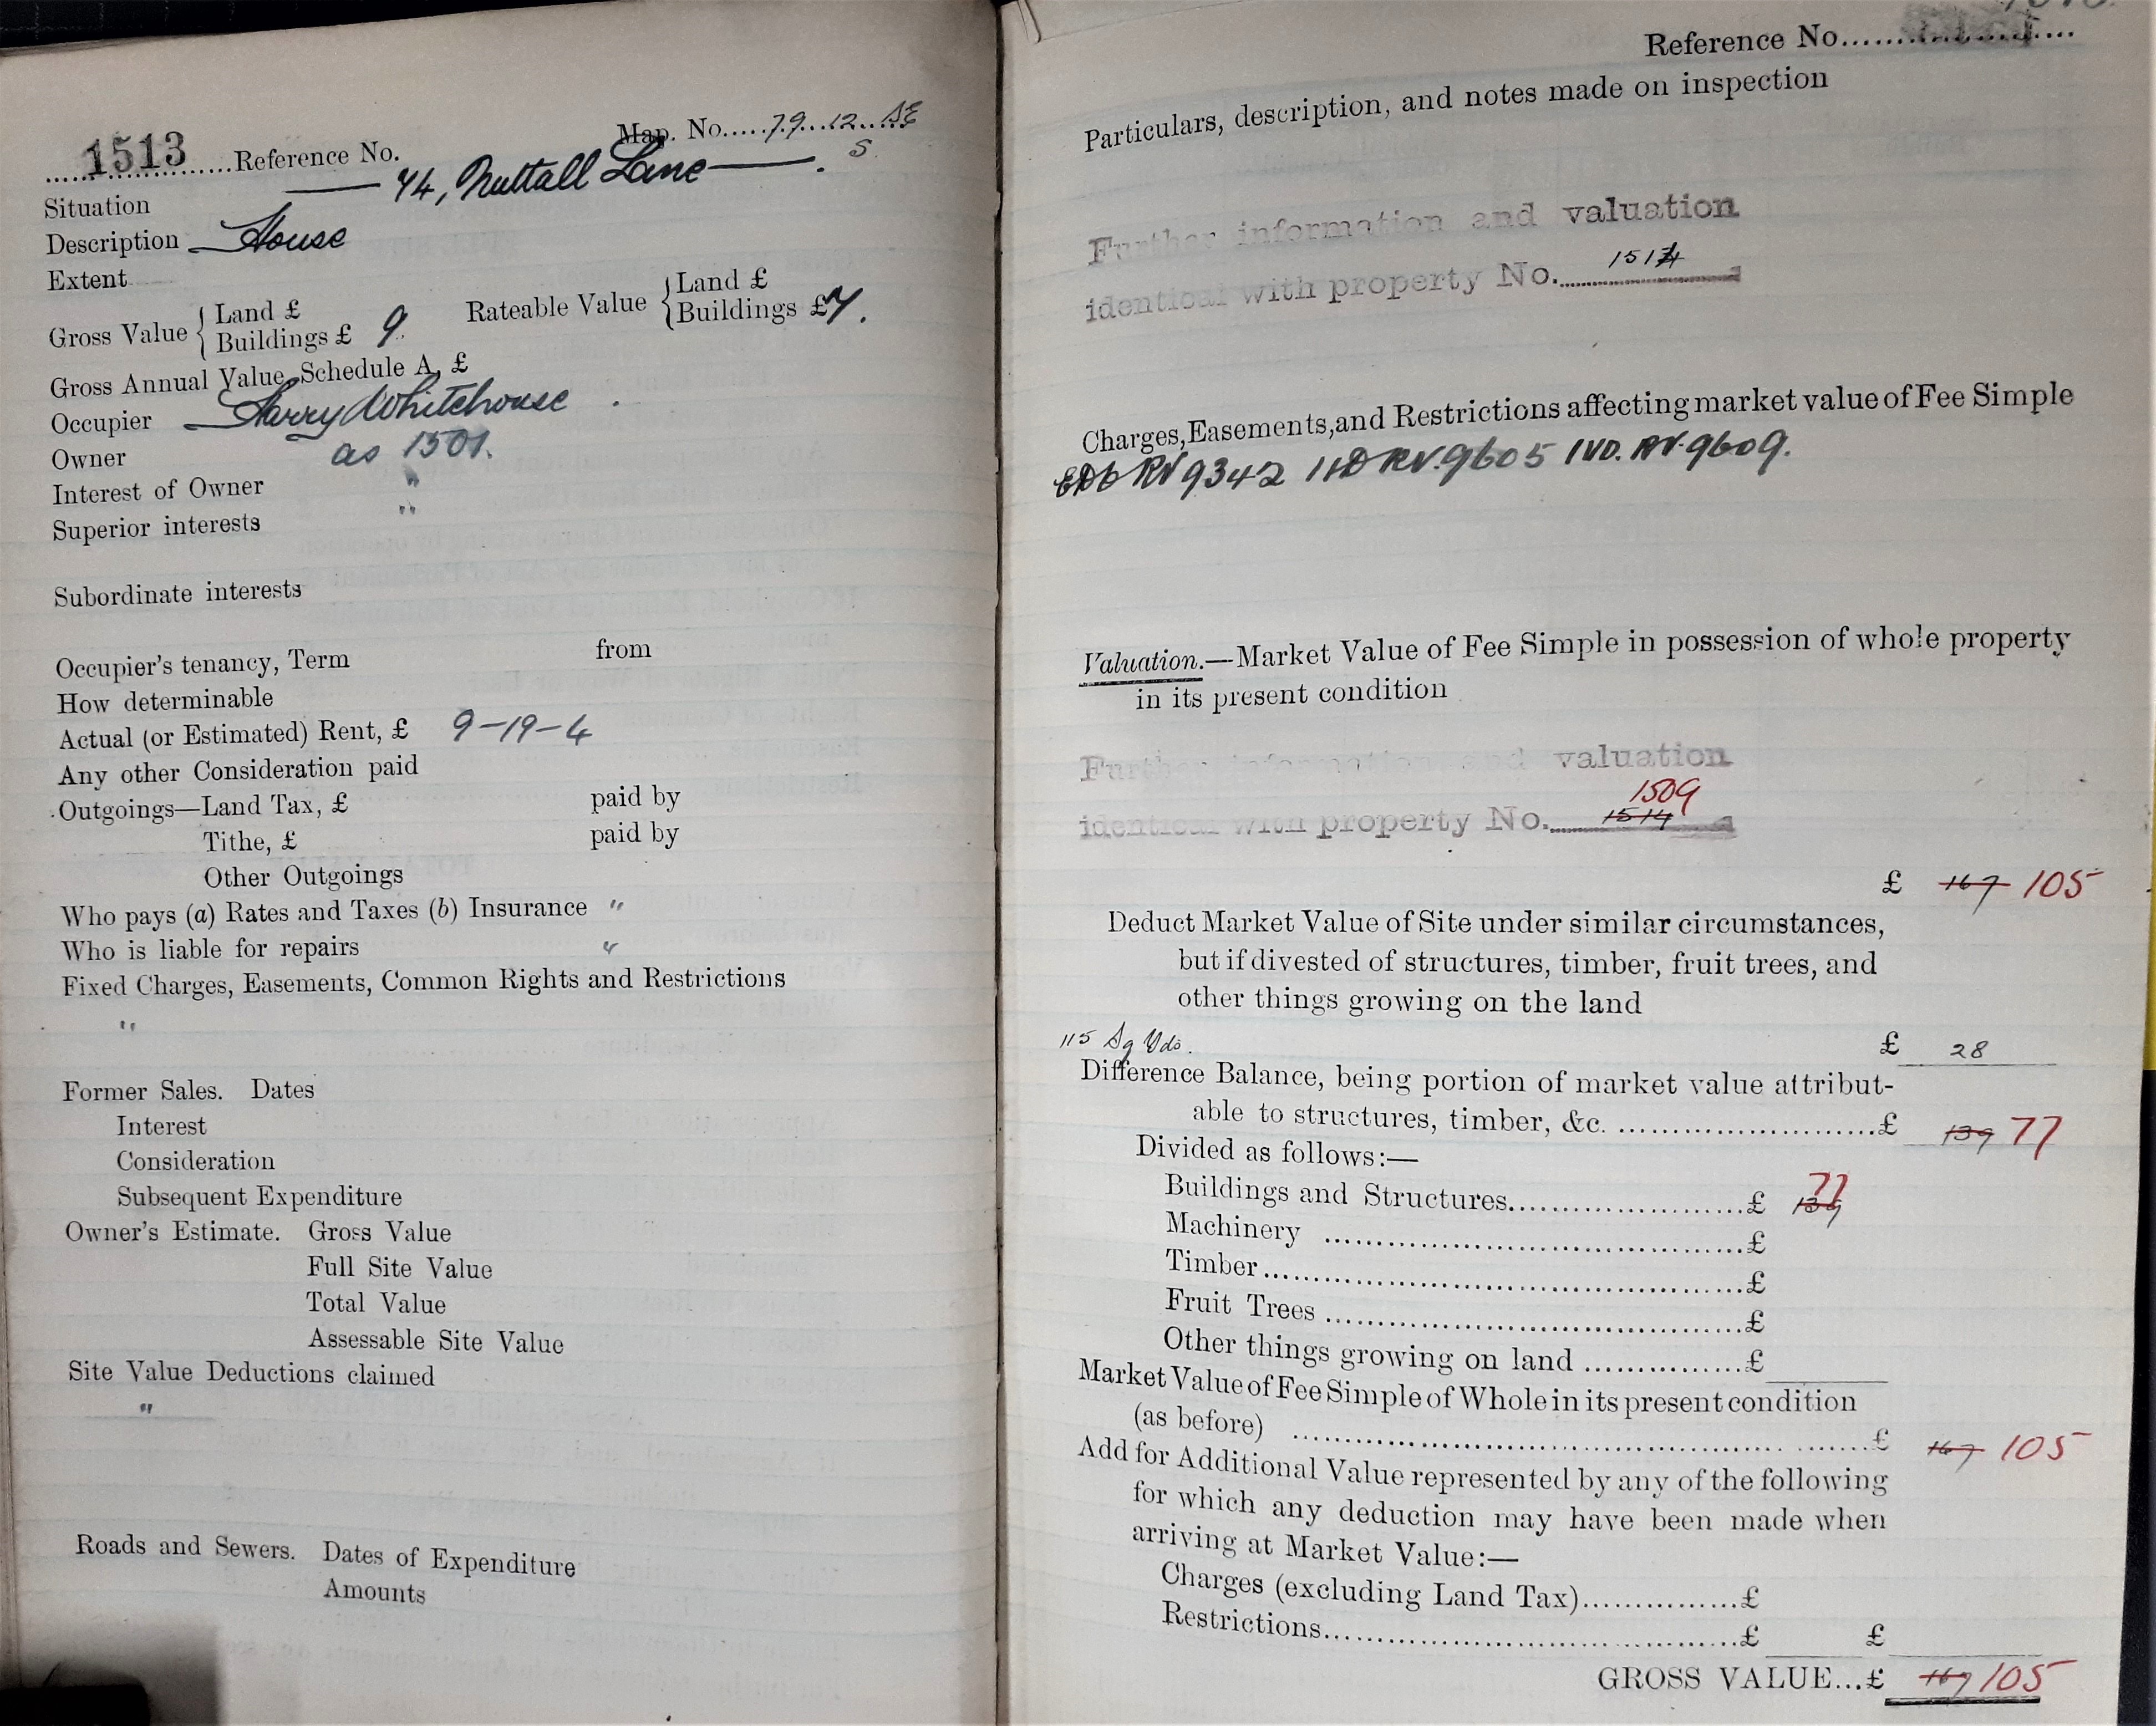 1513 Reference No. Map. No. 79.12.SE
S.
Situation 74, Nuttall Lane
Description House
Extent
Gross Value { Land £
Buildings £ 9 Rateable Value { Land £
Buildings £ 7.
Gross Annual Value, Schedule A, £
Occupier Harry Whitehouse
Owner as 1501.
Interest of Owner "
Superior interests "
Subordinate interests
Occupier's tenancy, Term from
How determinable
Actual (or Estimated) Rent, £ 9-19-4
Any other Consideration paid
Outgoings—Land Tax, £ paid by
Tithe, £ paid by
Other Outgoings
Who pays (a) Rates and Taxes (b) Insurance "
Who is liable for repairs "
Fixed Charges, Easements, Common Rights and Restrictions
"
Former Sales. Dates
Interest
Consideration
Subsequent Expenditure
Owner's Estimate. Gross Value
Full Site Value
Total Value
Assessable Site Value
Site Value Deductions claimed
"
Roads and Sewers. Dates of Expenditure
Amounts
Reference No.
Particulars, description, and notes made on inspection
Further information and valuation
identical with property No. 1514
Charges, Easements, and Restrictions affecting market value of Fee Simple
RV 9342 RV. 9605 IVD. RV. 9609.
Valuation.—Market Value of Fee Simple in possession of whole property
in its present condition
Further information and valuation
1509
identical with property No. 1514
£ 167 105
Deduct Market Value of Site under similar circumstances,
but if divested of structures, timber, fruit trees, and
other things growing on the land
115 Sq Yds. £ 28
Difference Balance, being portion of market value attribut-
able to structures, timber, &c. £ 139 77
Divided as follows:—
77
Buildings and Structures £ 139
Machinery £
Timber £
Fruit Trees £
Other things growing on land £
Market Value of Fee Simple of Whole in its present condition
(as before) £ 167 105
Add for Additional Value represented by any of the following
for which any deduction may have been made when
arriving at Market Value:—
Charges (excluding Land Tax) £
Restrictions £ £
GROSS VALUE...£ 167 105